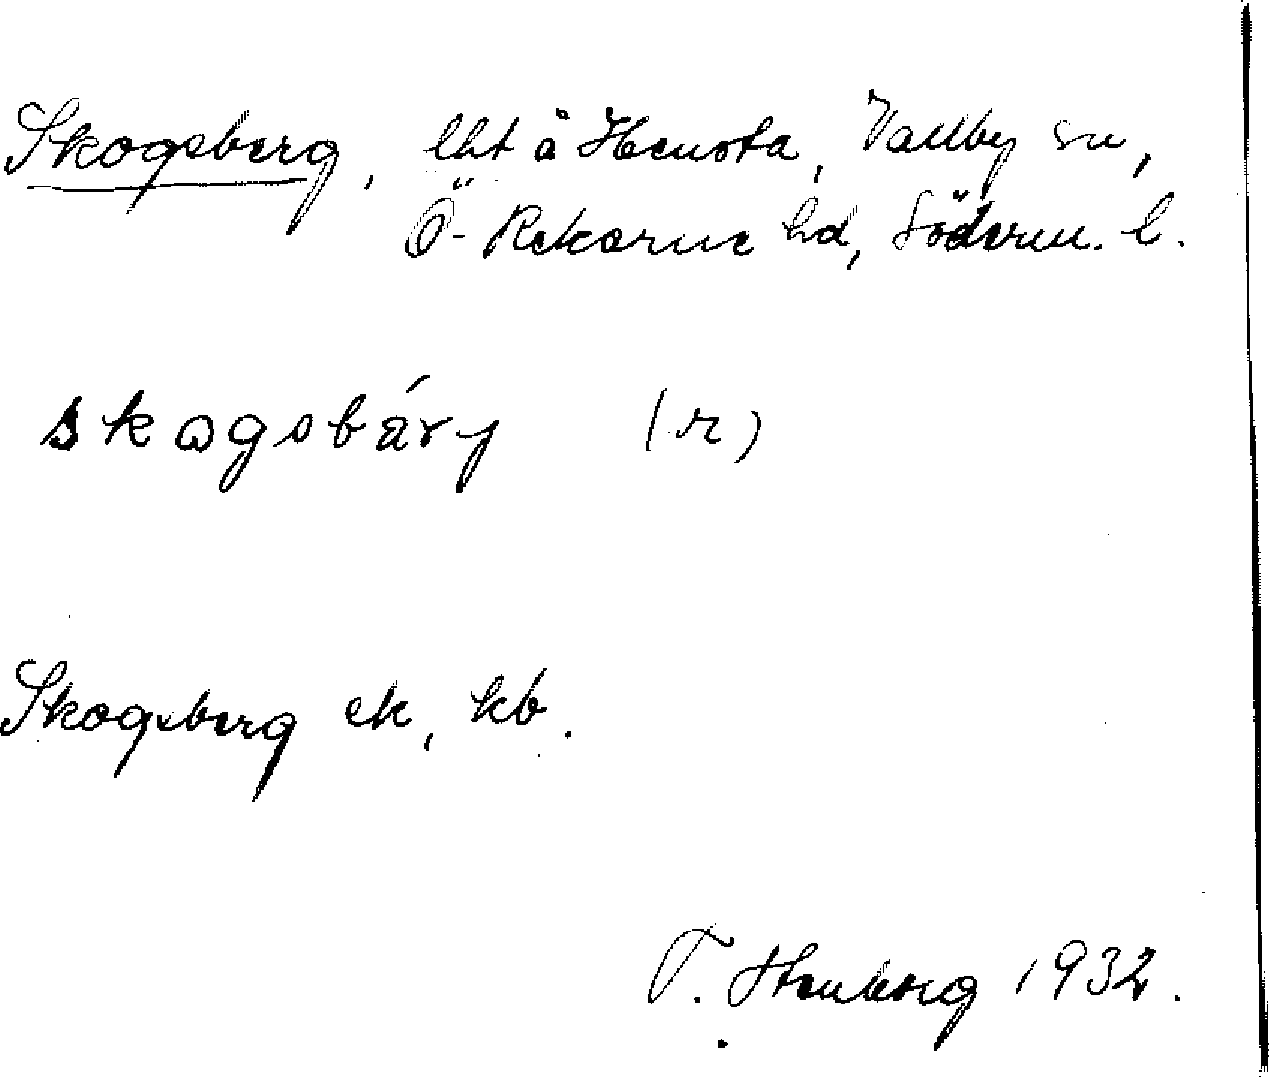 Skogsberg, lht å Hensta, Vallby sn,
Ö- Rekarne hd, Söderm. l.
skogsbárj (r)
Skogsberg ek, kb.
T. 1932.